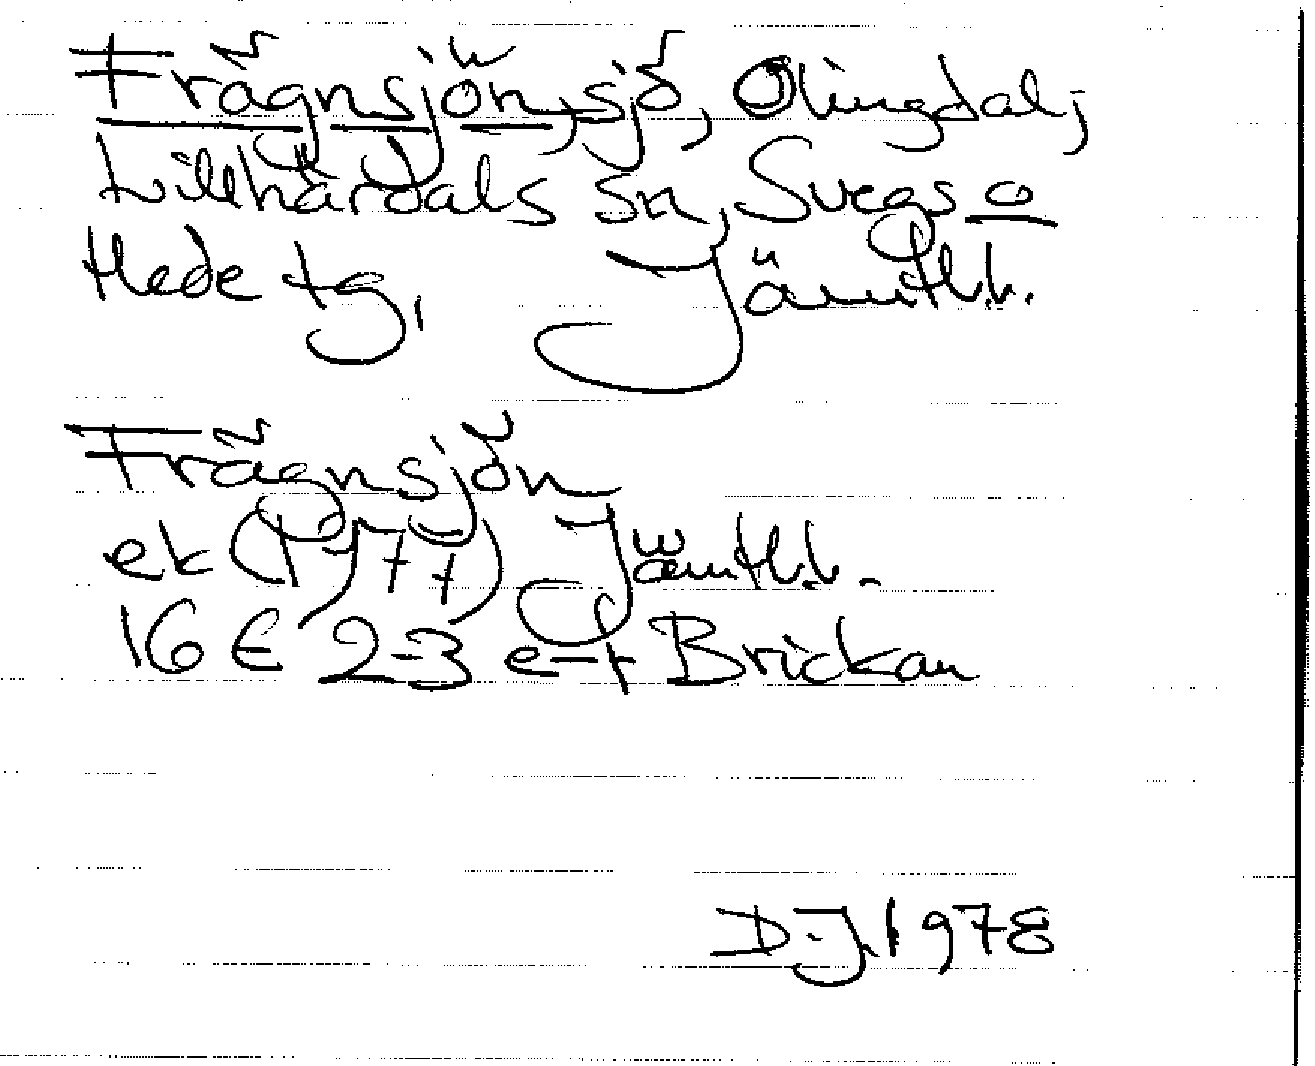 Frägnsjön, sjö, Olingdal,
Lillhärdals sn, Svegs o
Hede tg, Jämtl.l.
Frägnsjön
ek (1977) Jämtl.l.
16 E 2-3 e-f Brickan
D.J. 1978